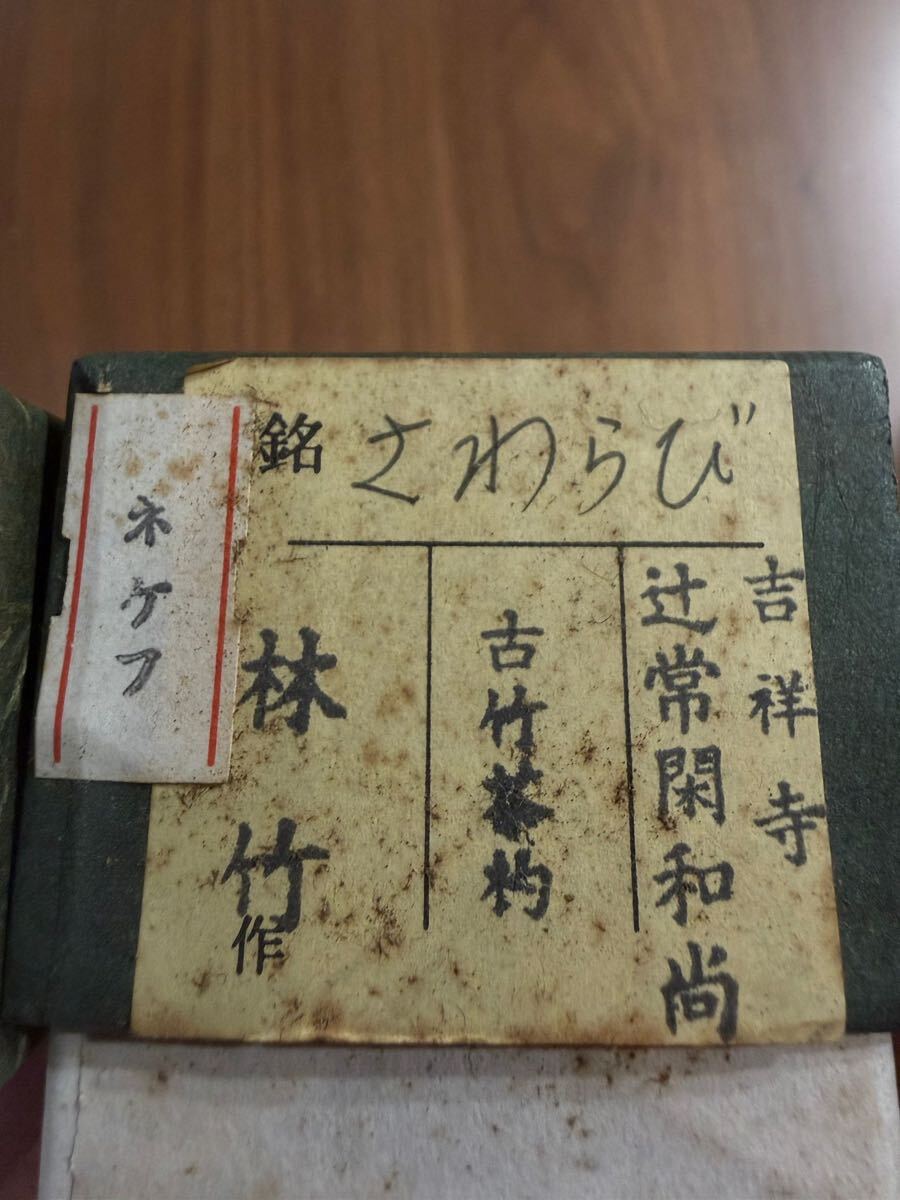 銘 さわらび
吉祥寺
辻常閑和尚
古竹茶杓
林竹作
ネケフ